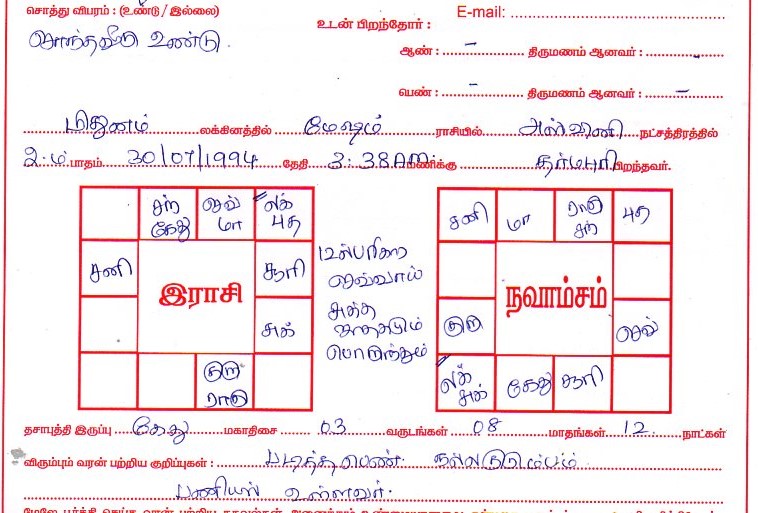 சொத்து விபரம் : (உண்டு / இல்லை)
E-mail:
சொந்தவீடு உண்டு.
உடன் பிறந்தோர் :
ஆண் : – திருமணம் ஆனவர் : –
பெண் : – திருமணம் ஆனவர் : –
மிதுனம் லக்கினத்தில் மேஷம் ராசியில் அஸ்வினி நட்சத்திரத்தில்
2.ம் பாதம் 30/07/1994 தேதி 3:38AM மணிக்கு தர்மபுரி பிறந்தவர்.
சந் கேது
செவ் மா
லக் புத
சனி
சூரி
சுக்
குரு ராகு
இராசி
செவ்வாய்
பொறுந்தும்
சனி
மா
ராகு சந்
புத
குரு
செவ்
லக் சுக்
கேது
சூரி
நவாம்சம்
தசாபுத்தி இருப்பு கேது மகாதிசை 03 வருடங்கள் 08 மாதங்கள் 12 நாட்கள்
விரும்பும் வரன் பற்றிய குறிப்புகள் : படித்த பெண் நல்லகுடும்பம்
பணியில் உள்ளவர்.